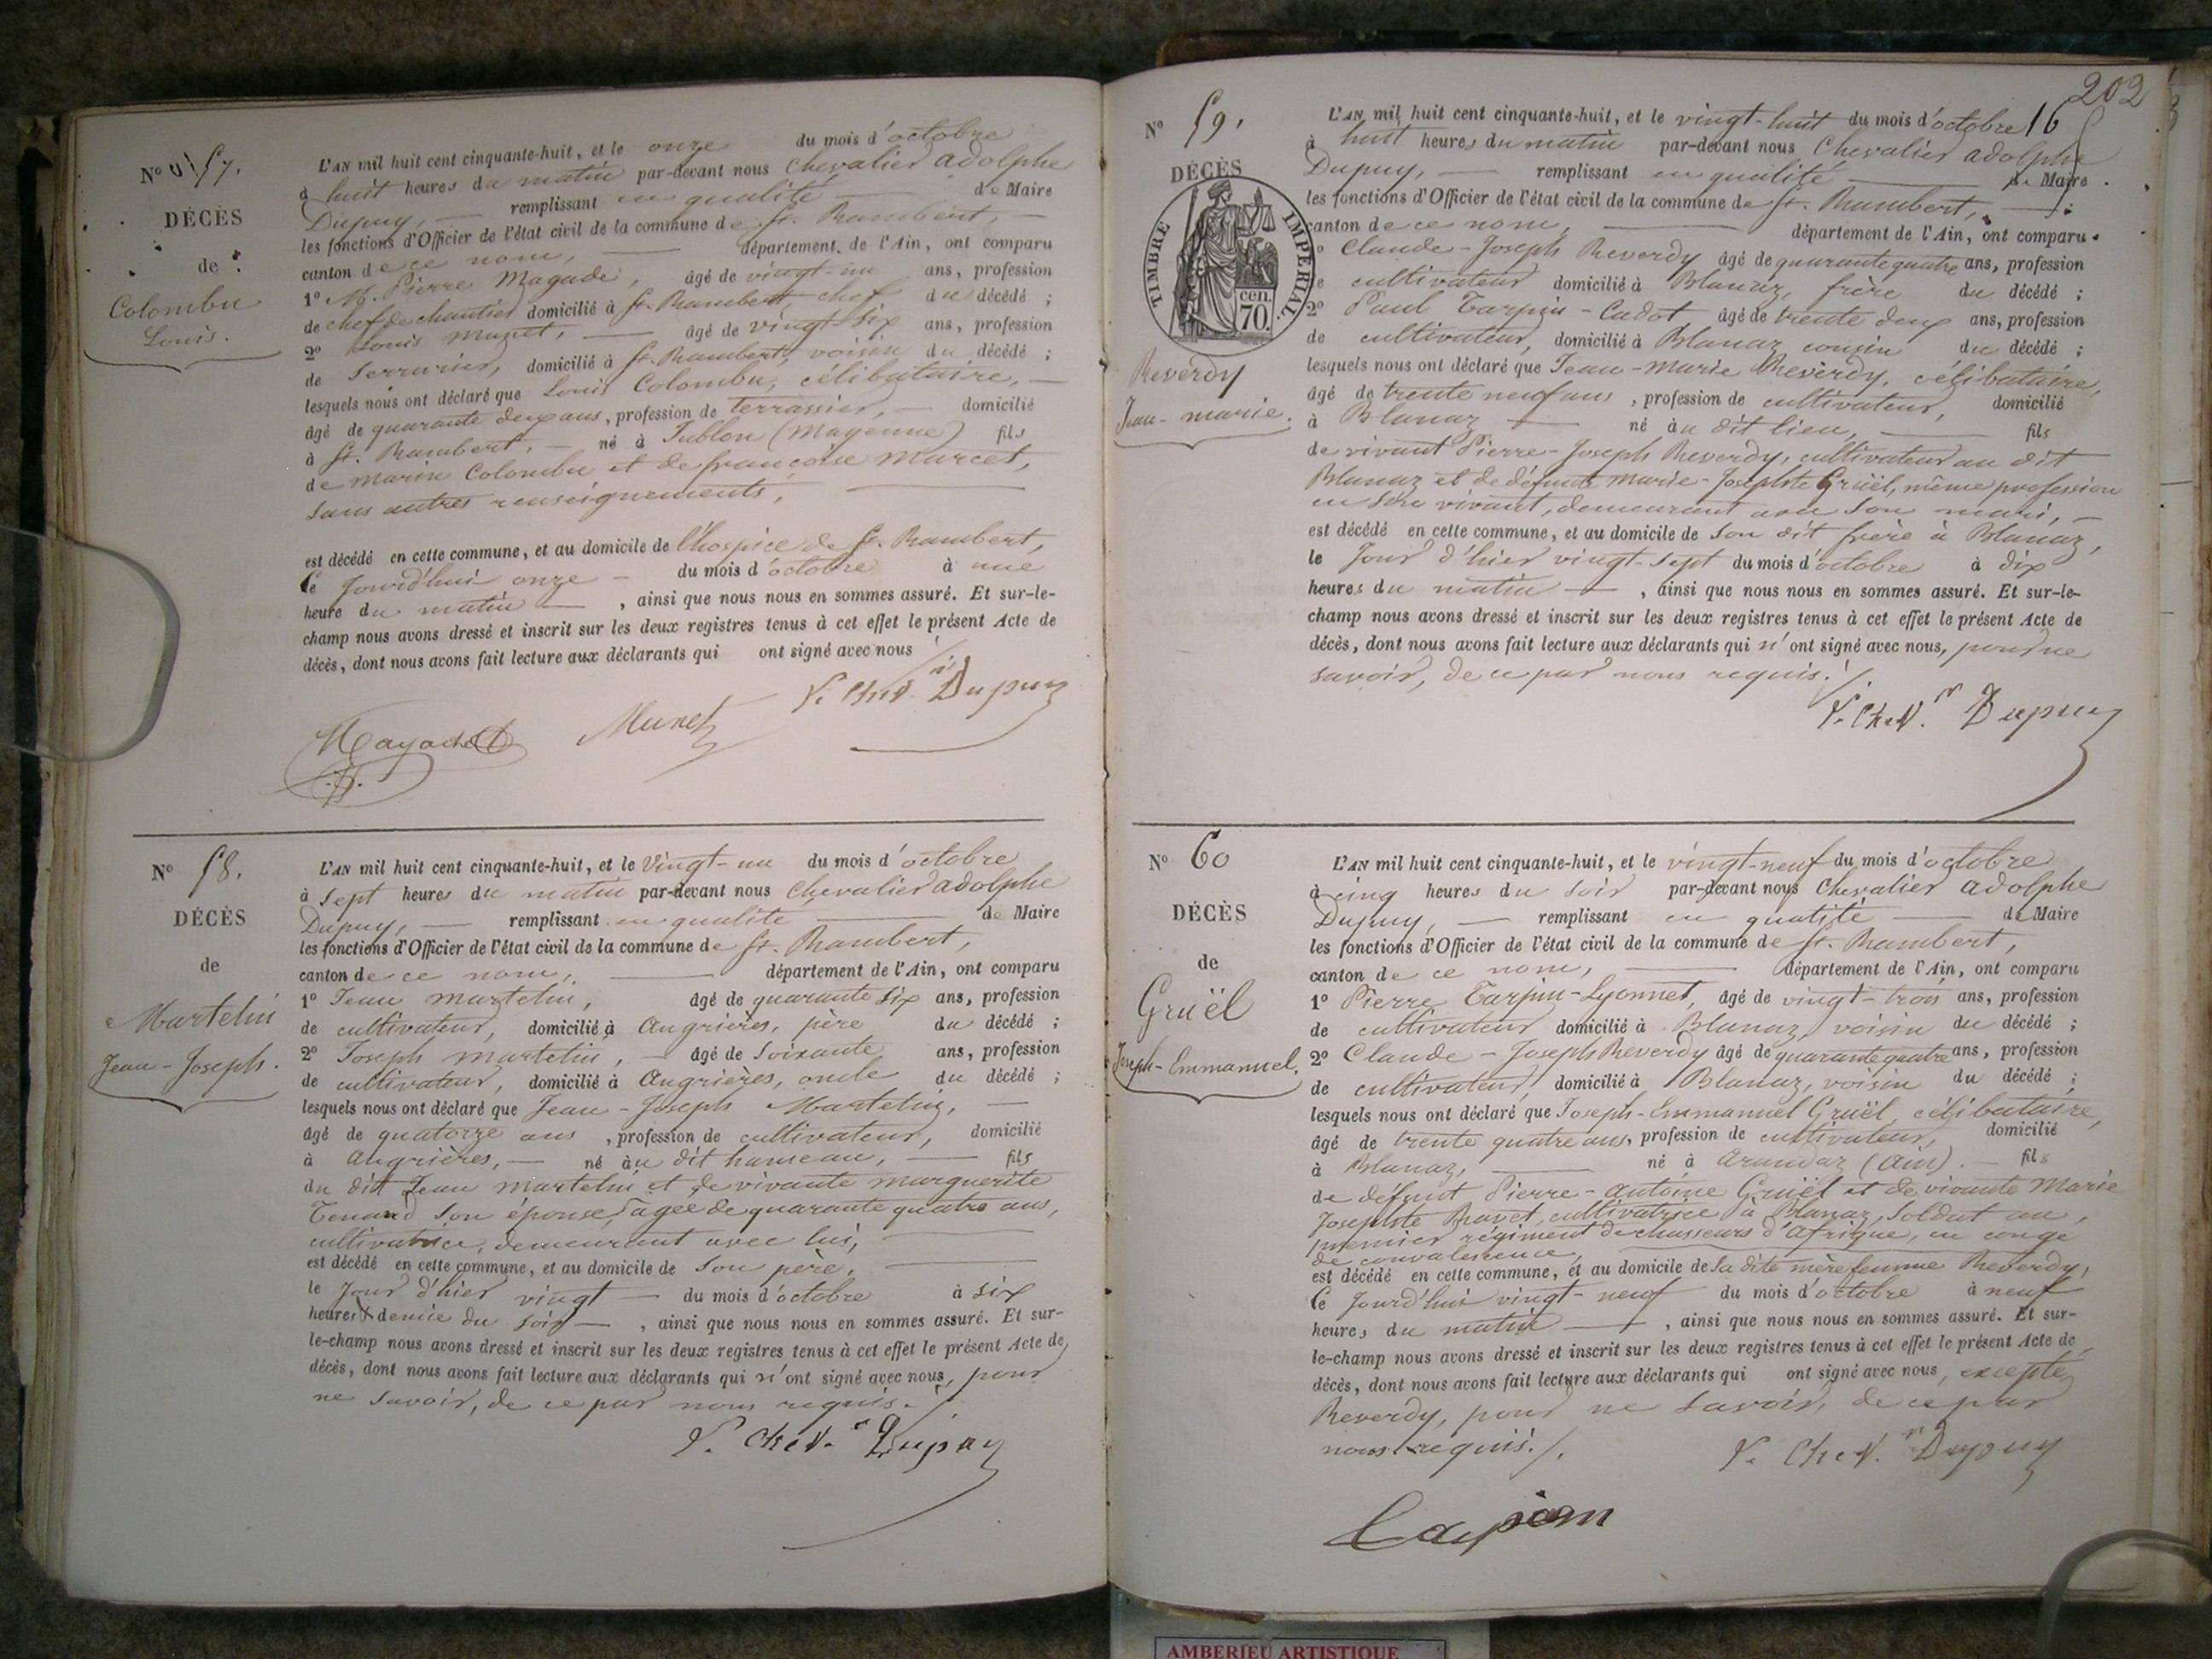 No 57.
DÉCÈS
de
Colombu
Louis.
L'AN mil huit cent cinquante-huit, et le onze du mois d'octobre
à huit heures du matin par-devant nous Chevalier Adolphe
Dupuy, remplissant en qualité de Maire
les fonctions d'Officier de l'état civil de la commune de St. Rambert,
canton de ce nom, département de l'Ain, ont comparu
1o M. Pierre Magade, âgé de vingt-un ans, profession
de chef de chantier domicilié à St. Rambert, chef du décédé ;
2o Louis Munet, âgé de vingt-six ans, profession
de serrurier, domicilié à St. Rambert, voisin du décédé ;
lesquels nous ont déclaré que Louis Colombu, célibataire,
âgé de quarante deux ans, profession de terrassier, domicilié
à St. Rambert, né à Jublon (Mayenne) fils
de Marin Colombu et de françoise Marcet,
sans autres renseignements,
est décédé en cette commune, et au domicile de l'hospice de St. Rambert,
Ce Jourd'hui onze du mois d'octobre à une
heure du matin, ainsi que nous nous en sommes assuré. Et sur-le-
champ nous avons dressé et inscrit sur les deux registres tenus à cet effet le présent Acte de
décès, dont nous avons fait lecture aux déclarants qui ont signé avec nous
Munet Chev. Dupuy
No 58.
DÉCÈS
de
Martelin
Jean-Joseph.
L'AN mil huit cent cinquante-huit, et le Vingt-un du mois d'octobre
à sept heures du matin par-devant nous Chevalier Adolphe
Dupuy, remplissant en qualité de Maire
les fonctions d'Officier de l'état civil de la commune de St. Rambert,
canton de ce nom, département de l'Ain, ont comparu
1o Jean Martelin, âgé de quarante six ans, profession
de cultivateur, domicilié à Angrières, père du décédé ;
2o Joseph Martelin, âgé de soixante ans, profession
de cultivateur, domicilié à Angrières, oncle du décédé ;
lesquels nous ont déclaré que Jean-Joseph Martelin,
âgé de quatorze ans, profession de cultivateur, domicilié
à Angrières, né au dit hameau, fils
du dit Jean Martelin et de vivante Marguerite
Tenand son épouse, âgée de quarante quatre ans,
cultivatrice, demeurant avec lui,
est décédé en cette commune, et au domicile de son père,
le Jour d'hier vingt du mois d'octobre à six
heures & demie du soir, ainsi que nous nous en sommes assuré. Et sur-
le-champ nous avons dressé et inscrit sur les deux registres tenus à cet effet le présent Acte de
décès, dont nous avons fait lecture aux déclarants qui n'ont signé avec nous, pour
ne savoir, de ce par nous requis.
Chev. Dupuy
202
16
No 59.
DÉCÈS
TIMBRE IMPÉRIAL
cen.
70.
Reverdy
Jean-Marie.
L'AN mil huit cent cinquante-huit, et le vingt-huit du mois d'octobre
à huit heures du matin par-devant nous Chevalier Adolphe
Dupuy, remplissant en qualité de Maire
les fonctions d'Officier de l'état civil de la commune de St. Rambert,
canton de ce nom, département de l'Ain, ont comparu
1o Claude-Joseph Reverdy âgé de quarante quatre ans, profession
de cultivateur domicilié à Blanaz, frère du décédé ;
2o Paul Tarpin-Cadot âgé de trente deux ans, profession
de cultivateur, domicilié à Blanaz cousin du décédé ;
lesquels nous ont déclaré que Jean-Marie Reverdy, célibataire,
âgé de trente neuf ans, profession de cultivateur, domicilié
à Blanaz né au dit lieu, fils
de vivant Pierre-Joseph Reverdy, cultivateur au dit
Blanaz et de défunte Marie-Josephte Gruël, même profession
en son vivant, demeurant avec son mari,
est décédé en cette commune, et au domicile de son dit frère à Blanaz,
le Jour d'hier vingt-sept du mois d'octobre à dix
heures du matin, ainsi que nous nous en sommes assuré. Et sur-le-
champ nous avons dressé et inscrit sur les deux registres tenus à cet effet le présent Acte de
décès, dont nous avons fait lecture aux déclarants qui n'ont signé avec nous, pour ne
savoir, de ce par nous requis.
Chev. Dupuy
No 60
DÉCÈS
de
Gruël
Joseph-Emmanuel.
L'AN mil huit cent cinquante-huit, et le vingt-neuf du mois d'octobre
à cinq heures du soir par-devant nous Chevalier Adolphe
Dupuy, remplissant en qualité de Maire
les fonctions d'Officier de l'état civil de la commune de St. Rambert,
canton de ce nom, département de l'Ain, ont comparu
1o Pierre Tarpin-Lyonnet, âgé de vingt-trois ans, profession
de cultivateur domicilié à Blanaz, voisin du décédé ;
2o Claude-Joseph Reverdy âgé de quarante quatre ans, profession
de cultivateur, domicilié à Blanaz, voisin du décédé ;
lesquels nous ont déclaré que Joseph-Emmanuel Gruël, célibataire,
âgé de trente quatre ans, profession de cultivateur, domicilié
à Blanaz, né à Arandaz (Ain). fils
de défunt Pierre-Antoine Gruël et de vivante Marie
Josephte Ravet, cultivatrice à Blanaz, soldat au
premier régiment de chasseurs d'Afrique, en congé
de convalescence,
est décédé en cette commune, et au domicile de sa dite mère femme Reverdy,
Ce Jourd'hui vingt-neuf du mois d'octobre à neuf
heures du matin, ainsi que nous nous en sommes assuré. Et sur-
le-champ nous avons dressé et inscrit sur les deux registres tenus à cet effet le présent Acte de
décès, dont nous avons fait lecture aux déclarants qui ont signé avec nous, excepté
Reverdy, pour ne savoir, de ce par
nous requis.
Chev. Dupuy
AMBERIEU ARTISTIQUE